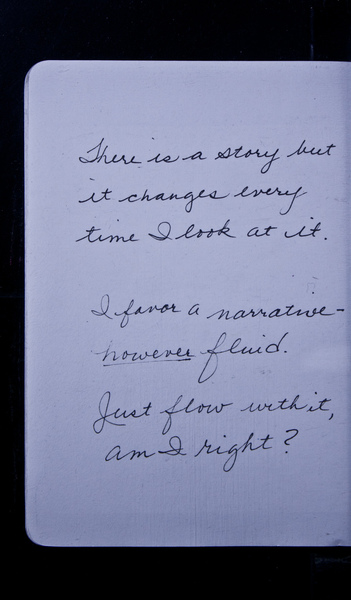 There is a story but
it changes every
time I look at it.
I favor a narrative-
however fluid.
Just flow with it,
am I right?